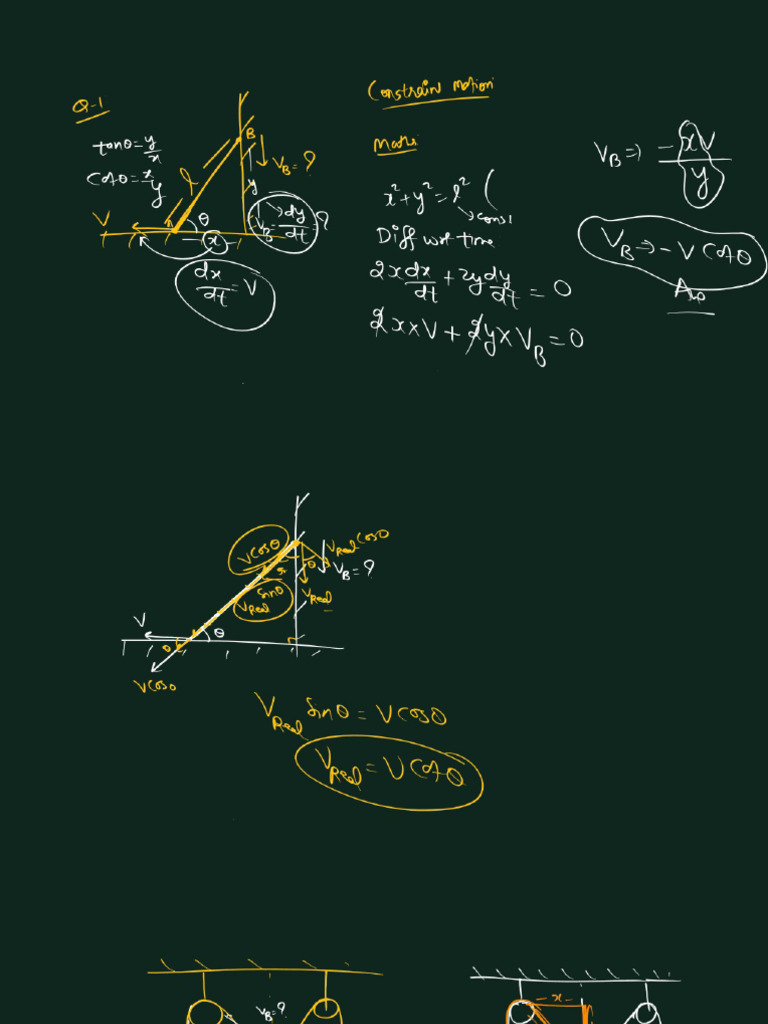 Constrain motion
Q-1
Maths
tanθ = y/x
cotθ = x/y
l
B
V_B = ?
y
V
θ
x
V_B = dy/dt = ?
dx/dt = V
x² + y² = l² (
→ const
Diff wrt time
2x dx/dt + 2y dy/dt = 0
2x × V + 2y × V_B = 0
V_B ⇒ -xV/y
V_B ⇒ -V Cotθ
Ans
VCosθ
V_Real Cosθ
θ
V_B = ?
V_Real Sinθ
V_Real
V
θ
θ
VCosθ
V_Real Sinθ = V Cosθ
V_Real = V Cotθ
V_B = ?
- x -